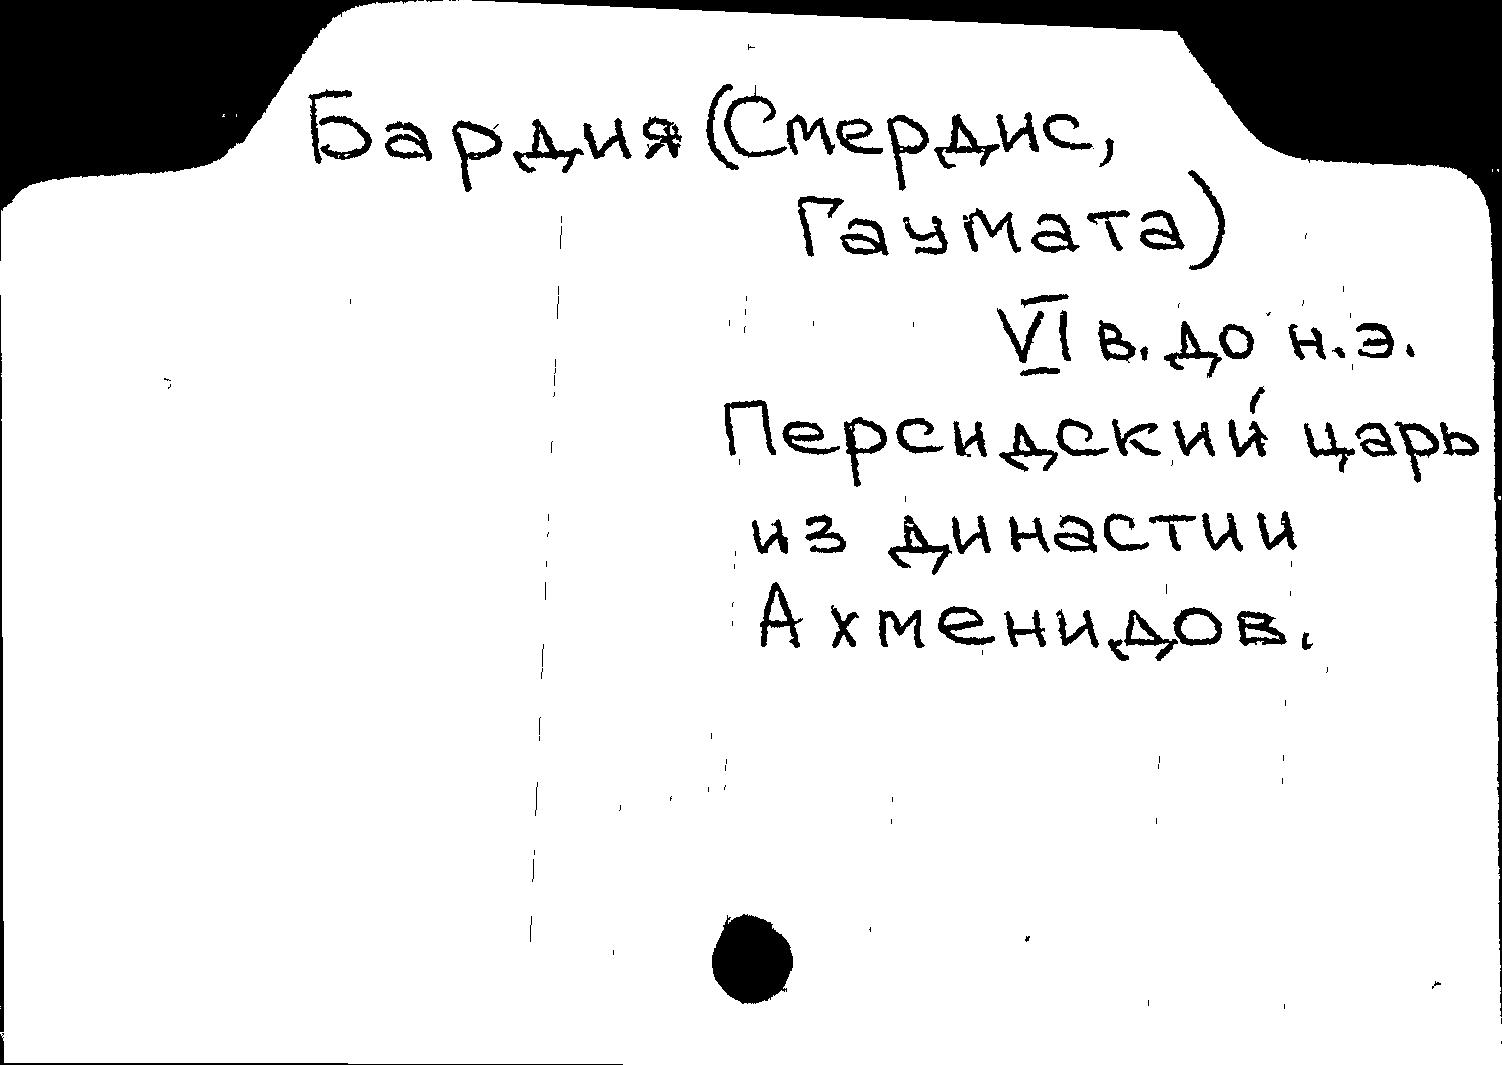 Бардия (Смердис,
Гаумата)
VI в. до н.э.
Персидский царь
из династии
Ахменидов.